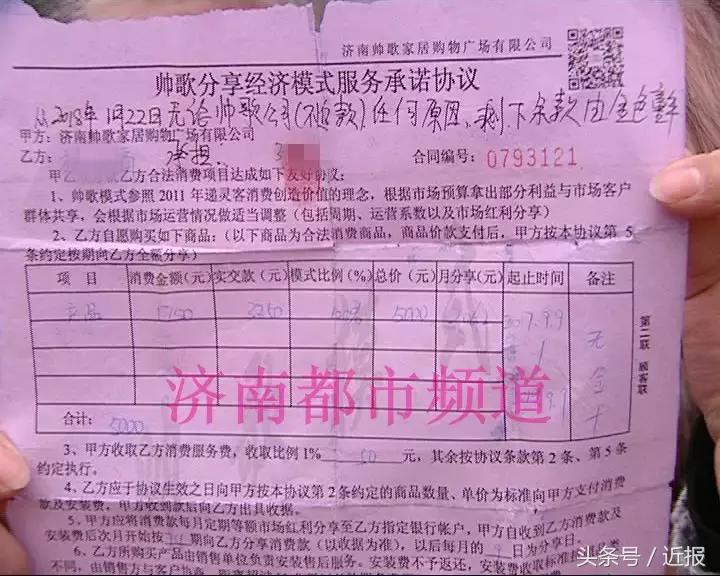 济南帅歌家居购物广场有限公司
帅歌分享经济模式服务承诺协议
从2018年1月22日无论帅歌公司(不返款)任何原因,剩下余款由
承担.
甲方:济南帅歌家居购物广场有限公司
乙方:
合同编号:0793121
甲乙合法消费项目达成如下友好协议:
1、帅歌模式参照 2011 年递灵客消费创造价值的理念,根据市场预算拿出部分利益与市场客户
群体共享,会根据市场运营情况做适当调整(包括周期、运营系数以及市场红利分享)
2、乙方自愿购买如下商品:(以下商品为合法消费商品,商品价款支付后,甲方按本协议第 5
条约定按期向乙方全额分享)
项 目 消费金额(元) 实交款(元) 模式比例(%) 总价(元) 月分享(元) 起止时间 备注
产品 1750 3250 5000 7.9.9 无
合计: 5000
第二联 顾客联
济南都市频道
3、甲方收取乙方消费服务费,收取比例 1% 50 元,其余按协议条款第 2 条、第 5 条
约定执行。
4、乙方应于协议生效之日向甲方按本协议第 2 条约定的商品数量、单价为标准向甲方支付消费
款及安装费,甲方收到款后向乙方出具收据。
5、甲方应将消费款每月定期等额市场红利分享至乙方指定银行帐户,甲方自收到乙方消费款及
安装费后次月开始按 期向乙方分享消费款(以收据为准),以后每月的 日为分享日。
6、乙方所购买产品由销售单位负责安装售后服务。安装费不予返还,安装费收取标准
不同,由销售方与客户协商
头条号 / 近报